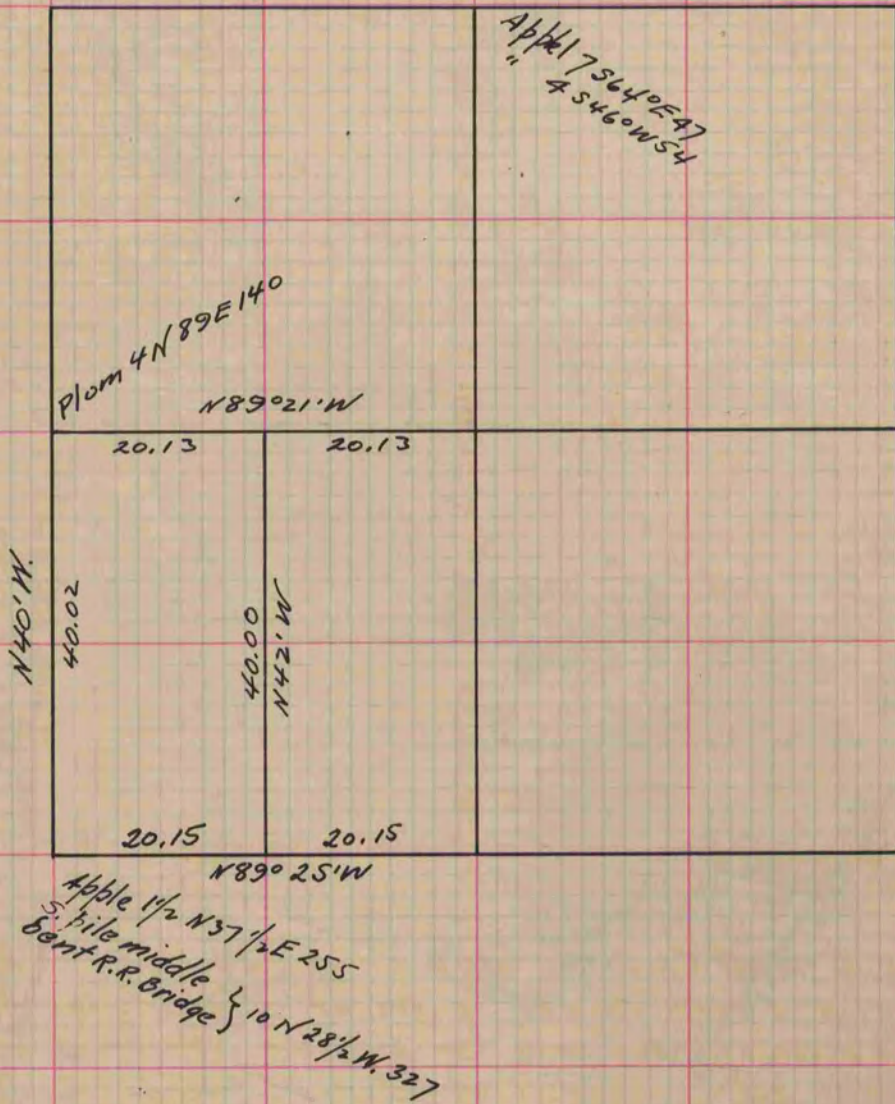 Apple 17 S64°E 47
" 4 S46°W 54
Plom 4 N 89 E 140
N89°21'W
20.13 20.13
N40'W.
40.02
40.00
N42'W
20.15 20.15
N89°25'W
Apple 1½ N37½E 255
S. pile middle
bent R.R. Bridge } 10 N28½W. 327